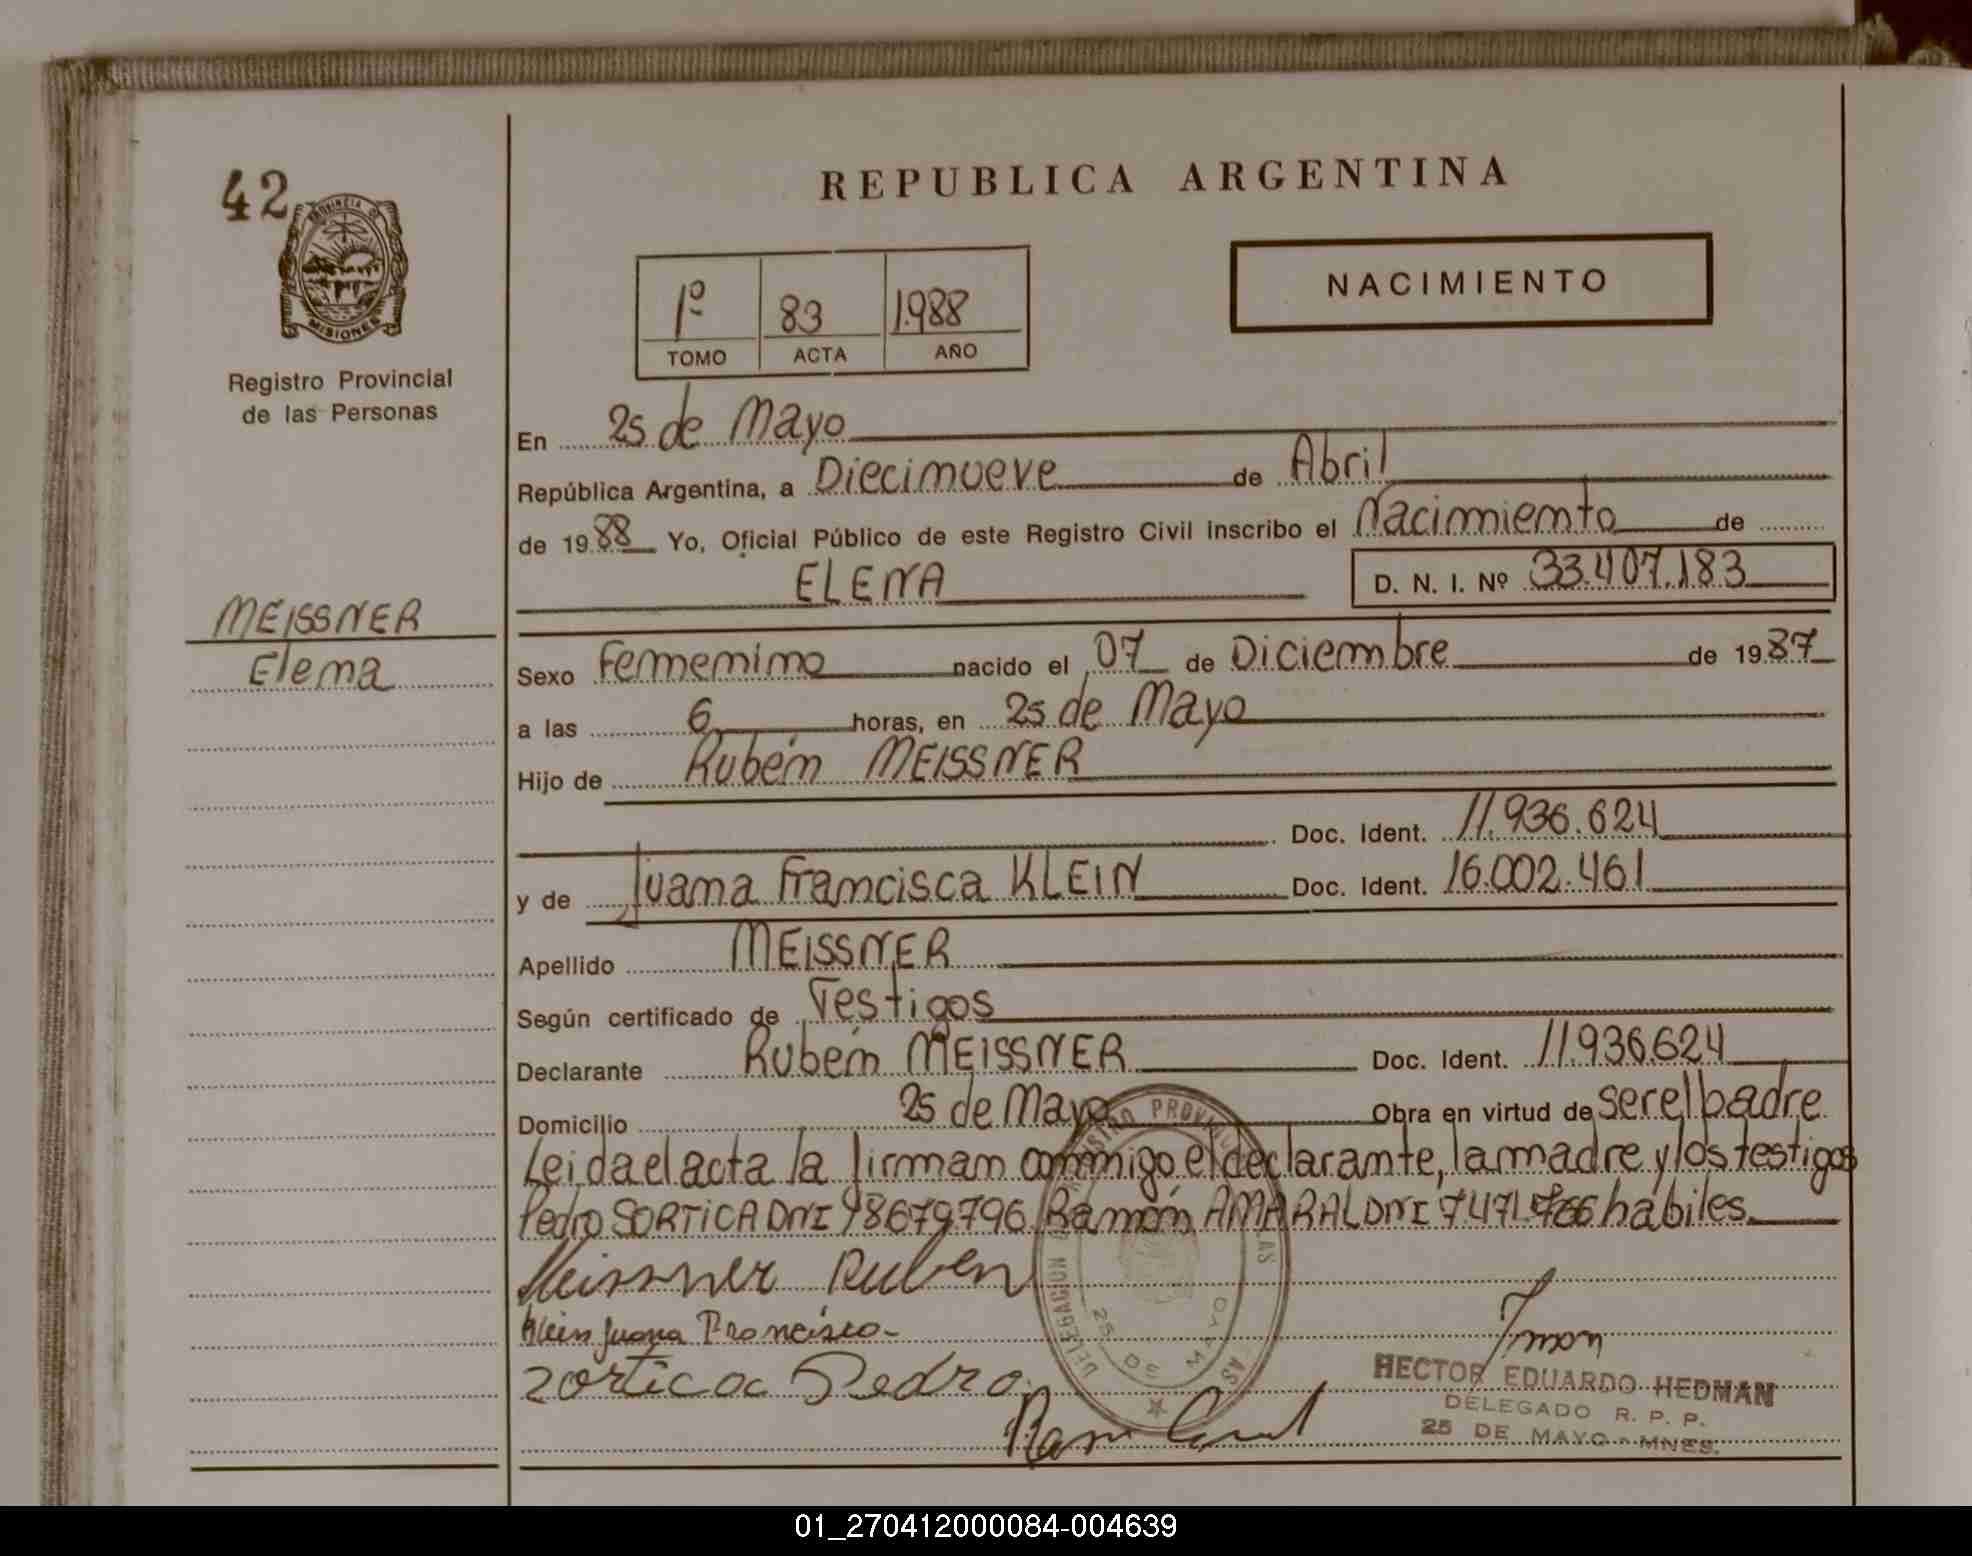 42
PROVINCIA DE
MISIONES
Registro Provincial
de las Personas
MEISSNER
Elena
REPUBLICA ARGENTINA
1º 83 1988
TOMO ACTA AÑO
NACIMIENTO
En 25 de Mayo
República Argentina, a Diecinueve de Abril
de 1988 Yo, Oficial Público de este Registro Civil inscribo el Nacimiento de
ELENA D. N. I. Nº 33.407.183
Sexo Femenino nacido el 07 de Diciembre de 1987
a las 6 horas, en 25 de Mayo
Hijo de Rubén MEISSNER
Doc. Ident. 11.936.624
y de Juana Francisca KLEIN Doc. Ident. 16.002.461
Apellido MEISSNER
Según certificado de Testigos
Declarante Rubén MEISSNER Doc. Ident. 11.936.624
Domicilio 25 de Mayo Obra en virtud de ser el padre
Leida el acta la firman conmigo el declarante, la madre y los testigos
Pedro SORTICA DNI 98679796 Ramón AMARAL DNI habiles
Meissner Ruben
Klein Juana Francisca
Zortica Pedro
HECTOR EDUARDO HEDMAN
DELEGADO R. P. P.
25 DE MAYO - MNES.
01_270412000084-004639